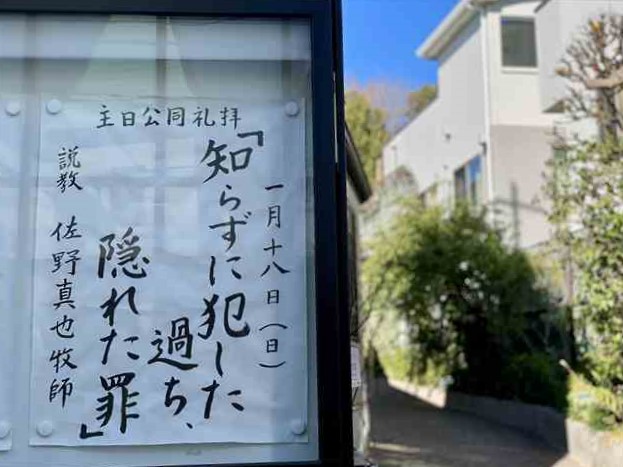 主日公同礼拝
一月十八日（日）
「知らずに犯した
過ち、
隠れた罪」
説教 佐野真也牧師